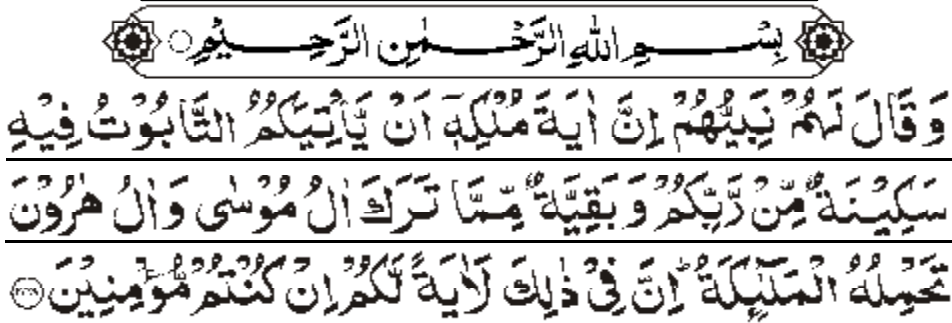 بِسْمِ اللهِ الرَّحْمٰنِ الرَّحِيْمِ
وَقَالَ لَهُمْ نَبِيُّهُمْ اِنَّ اٰيَةَ مُلْكِهٖٓ اَنْ يَّاْتِيَكُمُ التَّابُوْتُ فِيْهِ
سَكِيْنَةٌ مِّنْ رَّبِّكُمْ وَبَقِيَّةٌ مِّمَّا تَرَكَ اٰلُ مُوْسٰى وَاٰلُ هٰرُوْنَ
تَحْمِلُهُ الْمَلٰٓئِكَةُ ؕ اِنَّ فِيْ ذٰلِكَ لَاٰيَةً لَّكُمْ اِنْ كُنْتُمْ مُّؤْمِنِيْنَ